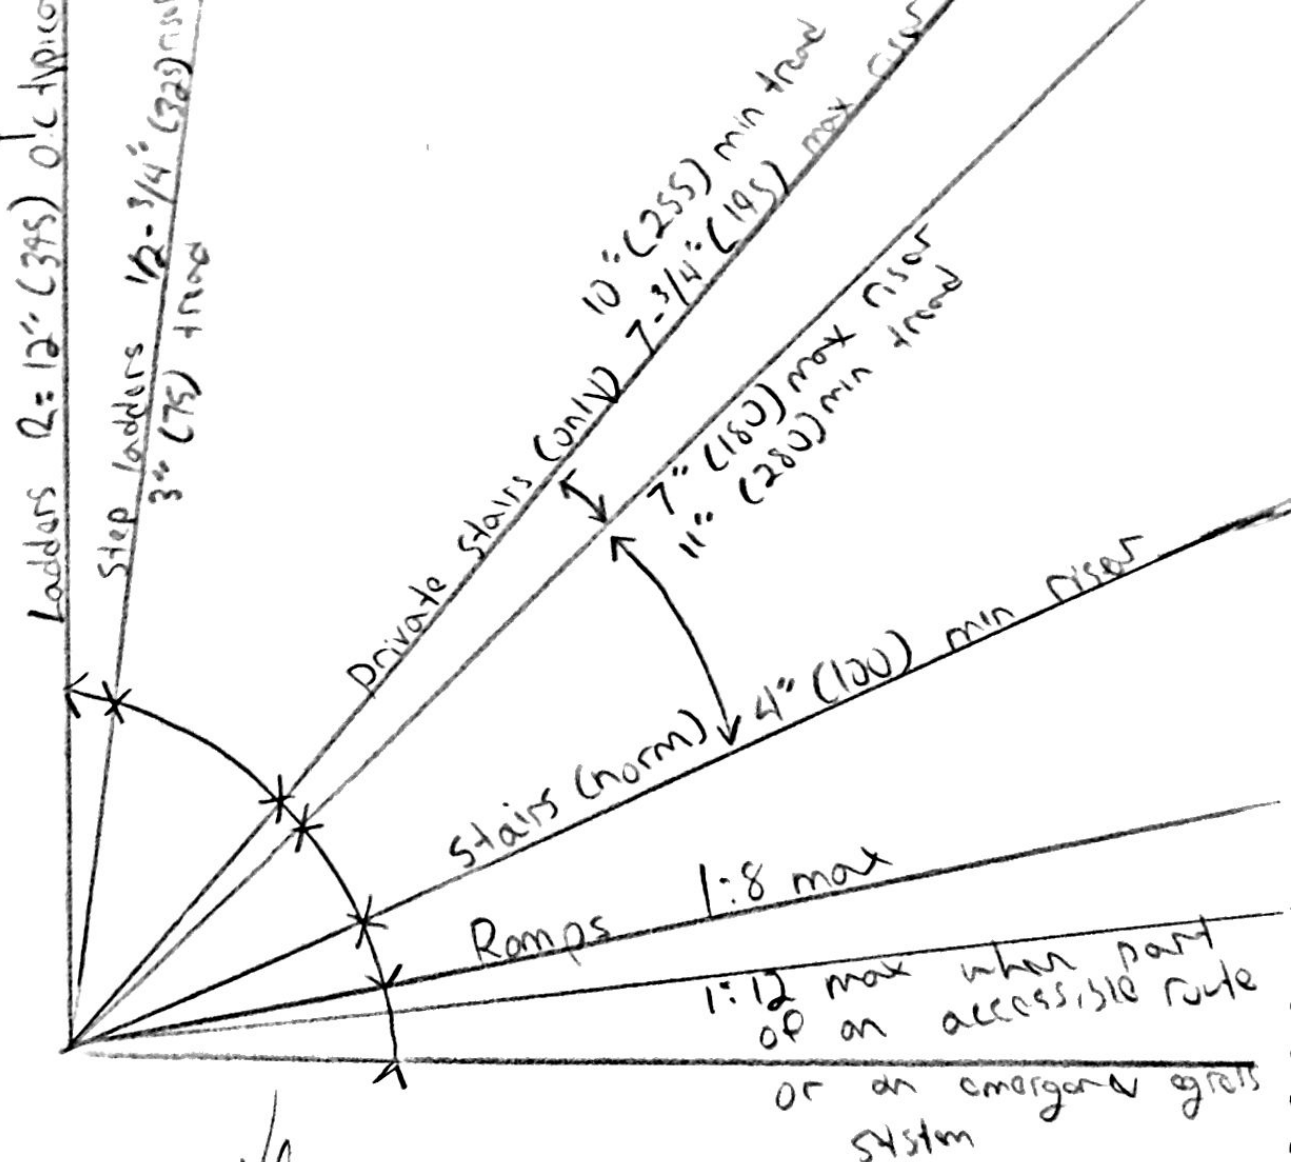 Ladders R=12" (395) O.C typico
Step ladders 1/2-3/4" (325) riser
3" (75) tread
10" (255) min tread
Private stairs (only) 7-3/4" (195) max riser
7" (180) max riser
11" (280) min tread
Stairs (norm) 4" (100) min riser
Ramps 1:8 max
1:12 max when part
of an accessible route
or an emergency egress
system